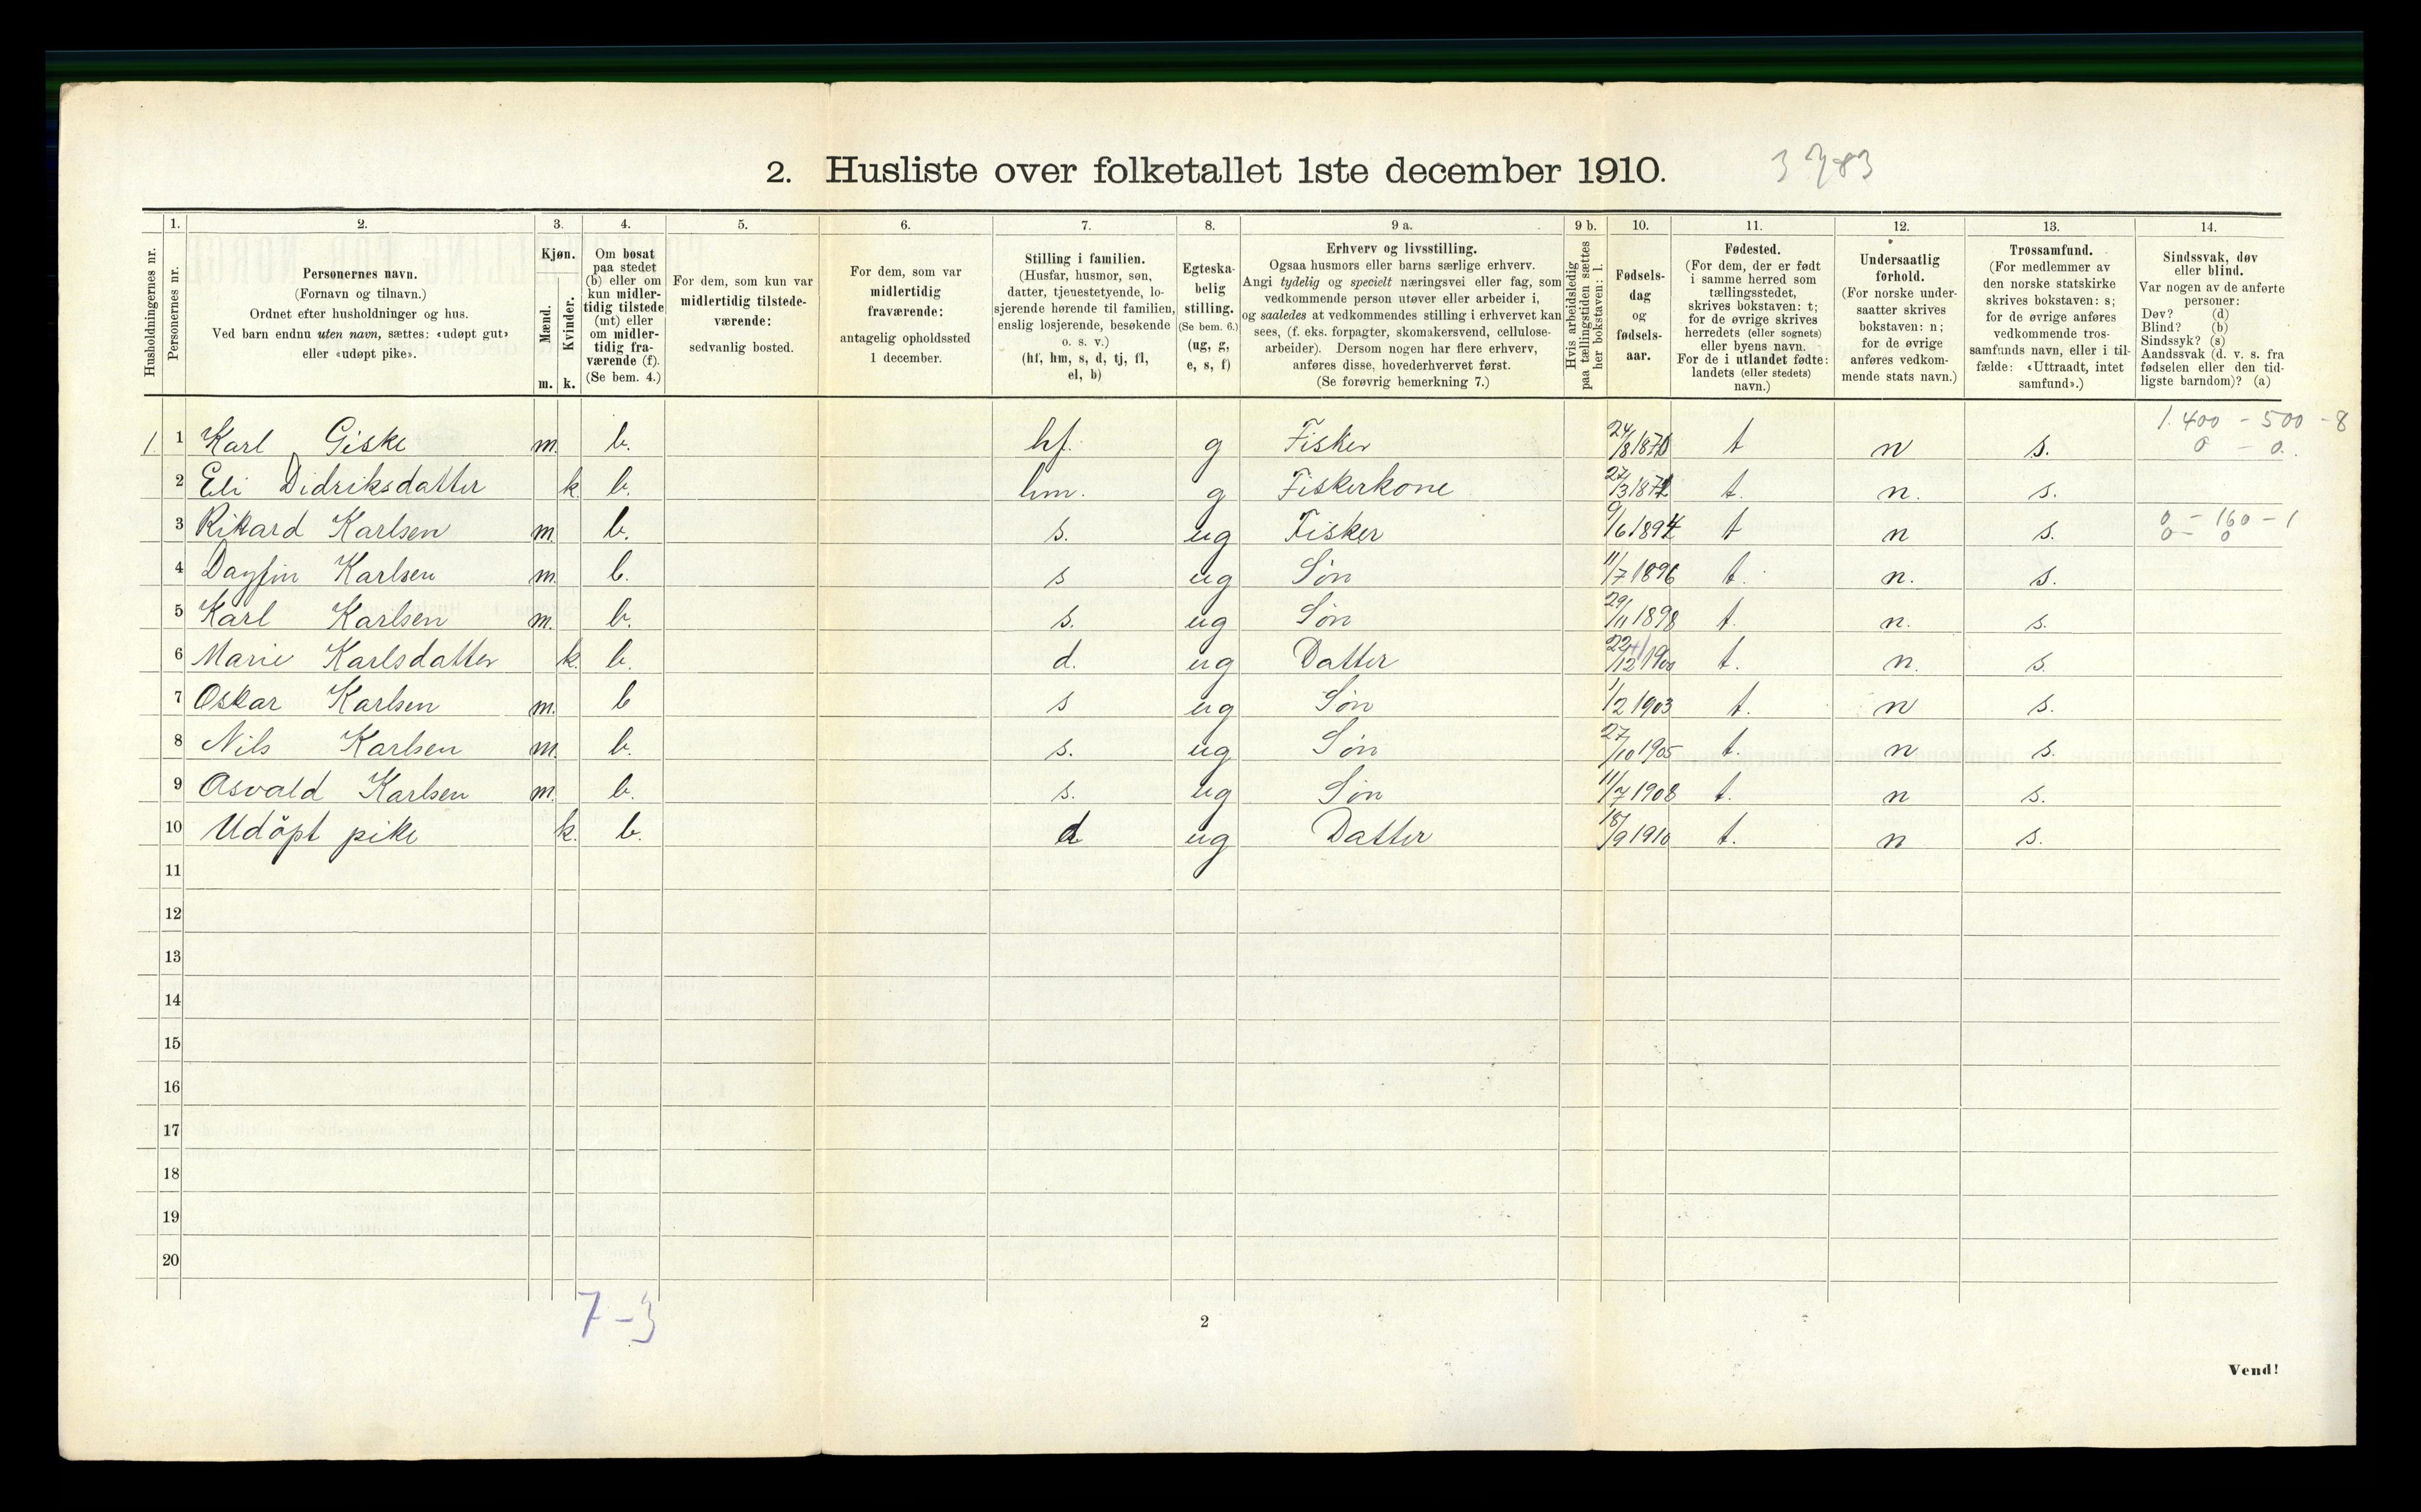 2. Husliste over folketallet 1ste december 1910.
3783
1. 2. 3. 4. 5. 6. 7. 8. 9 a. 9 b. 10. 11. 12. 13. 14.
Husholdningernes nr.
Personernes nr.
Personernes navn.
(Fornavn og tilnavn.)
Ordnet efter husholdninger og hus.
Ved barn endnu uten navn, sættes: «udøpt gut»
eller «udøpt pike».
Kjøn.
Mænd.
Kvinder.
m. k.
Om bosat
paa stedet
(b) eller om
kun midler-
tidig tilstede
(mt) eller
om midler-
tidig fra-
værende (f).
(Se bem. 4.)
For dem, som kun var
midlertidig tilstede-
værende:
sedvanlig bosted.
For dem, som var
midlertidig
fraværende:
antagelig opholdssted
1 december.
Stilling i familien.
(Husfar, husmor, søn,
datter, tjenestetyende, lo-
sjerende hørende til familien,
enslig losjerende, besøkende
o. s. v.)
(hf, hm, s, d, tj, fl,
el, b)
Egteska-
belig
stilling.
(Se bem. 6.)
(ug, g,
e, s, f)
Erhverv og livsstilling.
Ogsaa husmors eller barns særlige erhverv.
Angi tydelig og specielt næringsvei eller fag, som
vedkommende person utøver eller arbeider i,
og saaledes at vedkommendes stilling i erhvervet kan
sees, (f. eks. forpagter, skomakersvend, cellulose-
arbeider). Dersom nogen har flere erhverv,
anføres disse, hovederhvervet først.
(Se forøvrig bemerkning 7.)
Hvis arbeidsledig
paa tællingstiden sættes
her bokstaven: l.
Fødsels-
dag
og
fødsels-
aar.
Fødested.
(For dem, der er født
i samme herred som
tællingsstedet,
skrives bokstaven: t;
for de øvrige skrives
herredets (eller sognets)
eller byens navn.
For de i utlandet fødte:
landets (eller stedets)
navn.)
Undersaatlig
forhold.
(For norske under-
saatter skrives
bokstaven: n;
for de øvrige
anføres vedkom-
mende stats navn.)
Trossamfund.
(For medlemmer av
den norske statskirke
skrives bokstaven: s;
for de øvrige anføres
vedkommende tros-
samfunds navn, eller i til-
fælde: «Uttraadt, intet
samfund».)
Sindssvak, døv
eller blind.
Var nogen av de anførte
personer:
Døv? (d)
Blind? (b)
Sindssyk? (s)
Aandssvak (d. v. s. fra
fødselen eller den tid-
ligste barndom)? (a)
1. 400 - 500 - 8
1. 1 Karl Giske m. b. hf. g Fisker 24/8 1870 t n s. 0 - 0.
2 Eli Didriksdatter k b. hm. g Fiskerkone 27/3 1872 t. n. s.
0 - 160 - 1
3 Rikard Karlsen m. b. s. ug Fisker 9/6 1894 t n s. 0 - 0
4 Dagfin Karlsen m. b. s ug Søn 11/7 1896 t. n. s.
5 Karl Karlsen m. b. s. ug Søn 29/11 1898 t. n. s.
6 Marie Karlsdatter k. b. d. ug Datter 22/12 1900 t. n. s.
7 Oskar Karlsen m. b s ug Søn 1/2 1903 t. n s.
8 Nils Karlsen m. b. s. ug Søn 27/10 1905 t. n s.
9 Asvald Karlsen m. b. s. ug Søn 11/7 1908 t. n s.
10 Udöpt pike k. b. d ug Datter 18/9 1910 t. n s.
11
12
13
14
15
16
17
18
19
20
7-3
2
Vend!